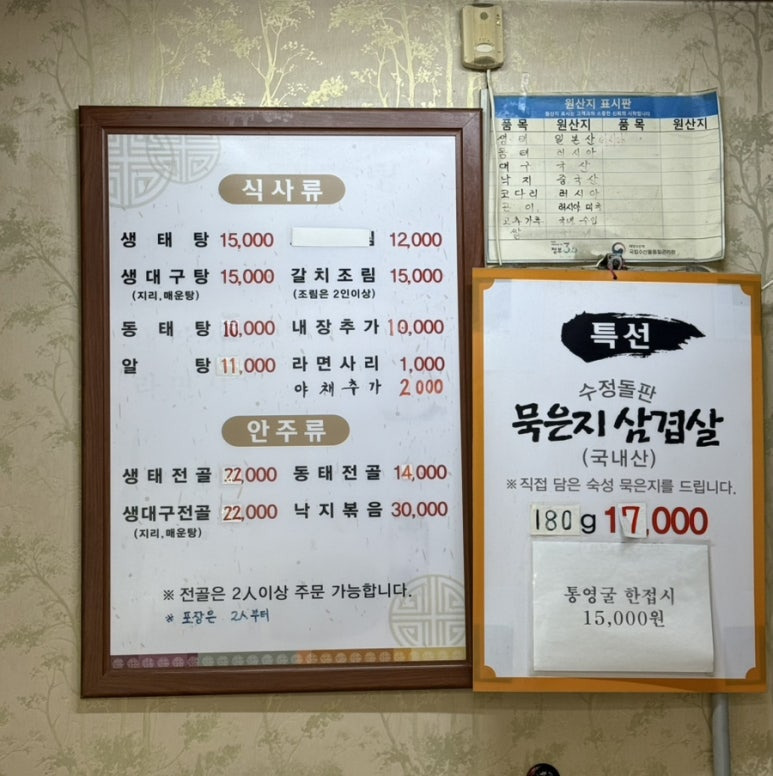 식사류
생태탕 15,000
12,000
생대구탕 15,000
(지리,매운탕)
갈치조림 15,000
(조림은 2인이상)
동태탕 10,000
내장추가 10,000
알탕 11,000
라면사리 1,000
야채추가 2000
안주류
생태전골 22,000
동태전골 14,000
생대구전골 22,000
(지리,매운탕)
낙지볶음 30,000
※ 전골은 2人이상 주문 가능합니다.
※ 포장은 2人부터
원산지 표시판
품목 원산지 품목 원산지
생태 일본산
동태 러시아
대구 국산
낙지 중국산
코다리 러시아
곤이 러시아 미국
고추가루 국내 수입
쌀
특선
수정돌판
묵은지 삼겹살
(국내산)
※직접 담은 숙성 묵은지를 드립니다.
180g 17,000
통영굴 한접시
15,000원